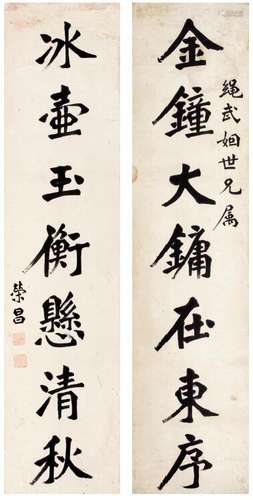 金鐘大鏞在東序
繩武姻世兄属
冰壺玉衡懸清秋
榮昌